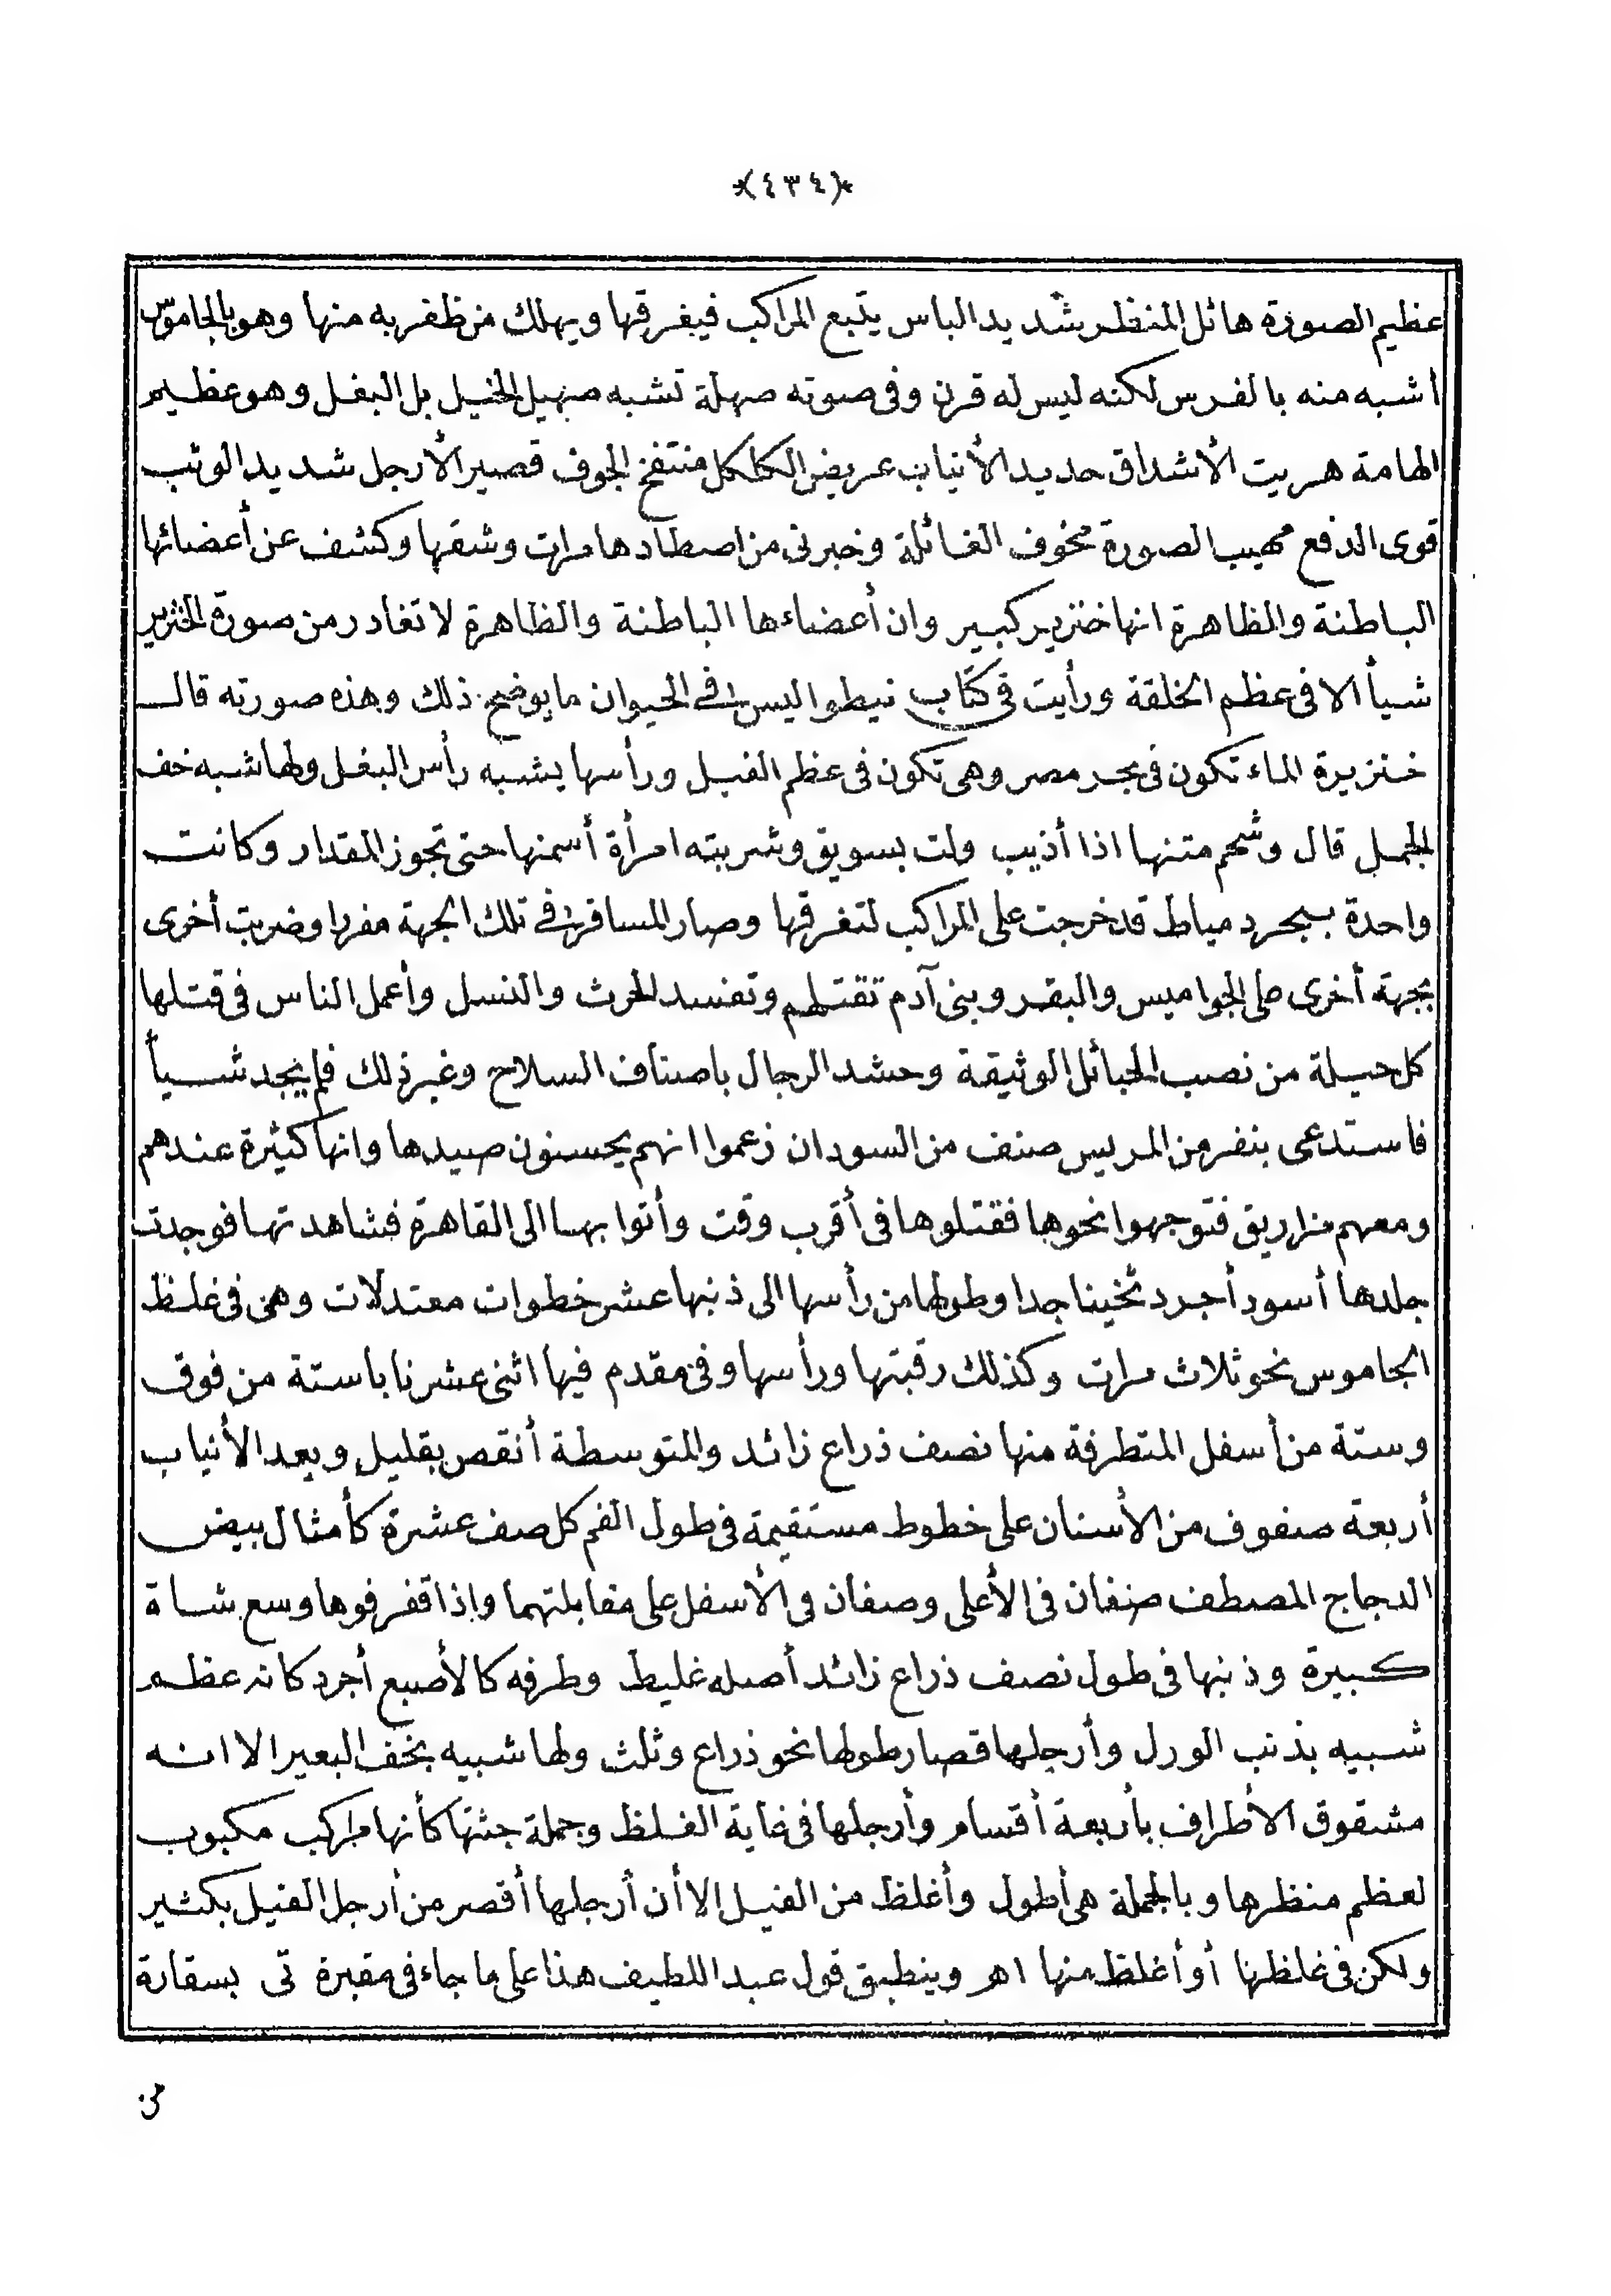 *(٤٣٤)*
عظيم الصورة هائل المنظر شديد الباس يتبع المراكب فيغرقها ويهلك من ظفر به منها وهو بالجاموس
أشبه منه بالفرس لكنه ليس له قرن وفى صوته صهلة تشبه صهيل الخيل بل البغل وهو عظيم
الهامة هريت الأشداق حديد الأنياب عريض الكلكل منتفخ الجوف قصير الأرجل شديد الوثب
قوى الدفع مهيب الصورة مخوف الغائلة وخبرنى من اصطادها مرات وشقها وكشف عن أعضائها
الباطنة والظاهرة انها خنزير كبير وان أعضاءها الباطنة والظاهرة لا تغادر من صورة الخنزير
شيأ الا فى عظم الخلقة ورأيت فى كتاب نيطواليس فى الحيوان ما يوضح ذلك وهذه صورته قال
خنزيرة الماء تكون فى بحر مصر وهى تكون فى عظم الفيل ورأسها يشبه رأس البغل ولها شبه خف
الجمل قال وشحم متنها اذا أذيب ولت بسويق وشربته امرأة أسمنها حتى تجوز المقدار وكانت
واحدة ببحر دمياط قد خرجت على المراكب لتغرقها وصار المسافر فى تلك الجهة مغررا وضربت أخرى
بجهة أخرى على الجواميس والبقر وبنى آدم تقتلهم وتفسد الحرث والنسل وأعمل الناس فى قتلها
كل حيلة من نصب الحبائل الوثيقة وحشد الرجال باصناف السلاح وغير ذلك فلم يجد شيأ
فاستدعى بنفر من المريس صنف من السودان زعموا انهم يحسنون صيدها وانها كثيرة عندهم
ومعهم مزاريق فتوجهوا نحوها فقتلوها فى أقرب وقت وأتوا بها الى القاهرة فشاهدتها فوجدت
جلدها أسود أجرد ثخينا جدا وطولها من رأسها الى ذنبها عشر خطوات معتدلات وهى فى غلظ
الجاموس نحو ثلاث مرات وكذلك رقبتها ورأسها وفى مقدم فيها اثنى عشر نابا ستة من فوق
وستة من أسفل المتطرفة منها نصف ذراع زائد والمتوسطة أنقص بقليل وبعد الأنياب
أربعة صفوف من الأسنان على خطوط مستقيمة فى طول الفم كل صف عشرة كأمثال بيض
الدجاج المصطف صفان فى الأعلى وصفان فى الأسفل على مقابلتهما واذا فغر فوها وسع شاة
كبيرة وذنبها فى طول نصف ذراع زائد أصله غليظ وطرفه كالأصبع أجرد كانه عظم
شبيه بذنب الورل وأرجلها قصار طولها نحو ذراع وثلث ولها شبيه بخف البعير الا انه
مشقوق الأطراف بأربعة أقسام وأرجلها فى غاية الغلظ وجملة جثتها كأنها مركب مكبوب
لعظم منظرها وبالجملة هى أطول وأغلظ من الفيل الا أن أرجلها أقصر من أرجل الفيل بكثير
ولكن فى غلظها أو أغلظ منها اهـ وينطبق قول عبد اللطيف هذا على ما جاء فى مقبرة تى بسقارة